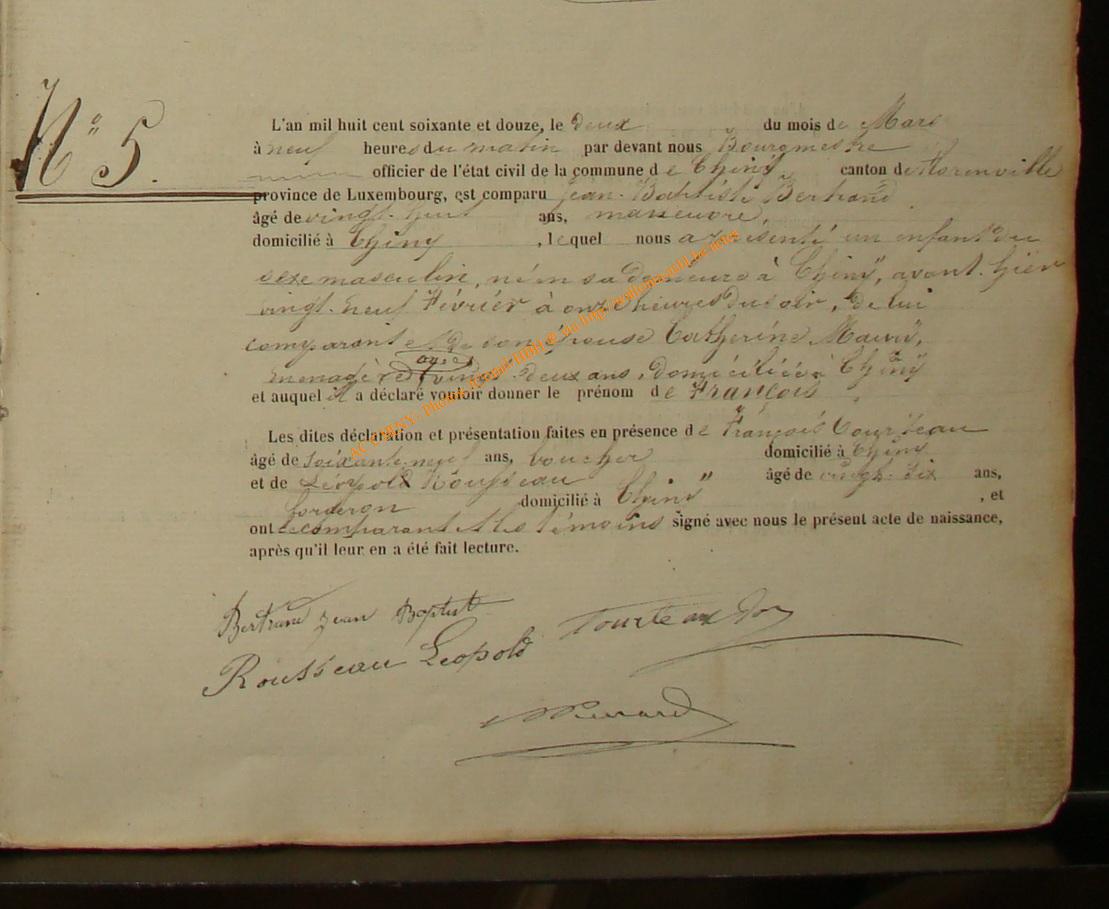 N° 5.
L'an mil huit cent soixante et douze, le deux du mois de Mars
à neuf heures du matin par devant nous Bourgmestre
officier de l'état civil de la commune de Chiny canton de Florenville
province de Luxembourg, est comparu Jean-Baptiste Bertrand
âgé de vingt-huit ans, manœuvre,
domicilié à Chiny, lequel nous a présenté un enfant du
sexe masculin, né en sa demeure à Chiny, avant-hier
vingt-neuf Février à onze heures du soir, de lui
comparant et de son épouse Catherine
âgée
menagère, de vingt-deux ans, domiciliée à Chiny
et auquel il a déclaré vouloir donner le prénom de François
Les dites déclaration et présentation faites en présence de François
âgé de soixante-neuf ans, domicilié à Chiny
et de Léopold Rousseau âgé de vingt-six ans,
domicilié à Chiny, et
ont le comparant et les témoins signé avec nous le présent acte de naissance,
après qu'il leur en a été fait lecture.
Bertrand Jean Baptist
Rousseau Léopold